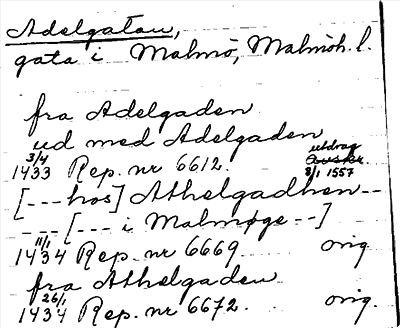 Adelgatan,
gata i Malmö, Malmöh. l.
fra Adelgaden
ud med Adelgaden
3/4 1433 Rep. nr 6612. utdrag 8/1 1557
[--- hos] Athelgadhen --
--- [--- i Malmøge --]
11/1 1434 Rep. nr 6669 orig.
fra Athelgaden
26/1 1434 Rep. nr 6672. orig.